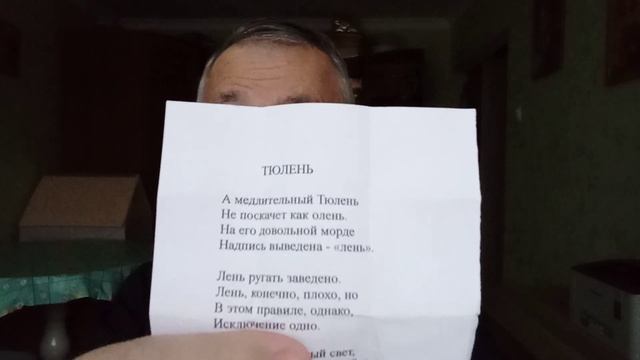 ТЮЛЕНЬ
А медлительный Тюлень
Не поскачет как олень.
На его довольной морде
Надпись выведена - «лень».
Лень ругать заведено.
Лень, конечно, плохо, но
В этом правиле, однако,
Исключение одно.
свет,